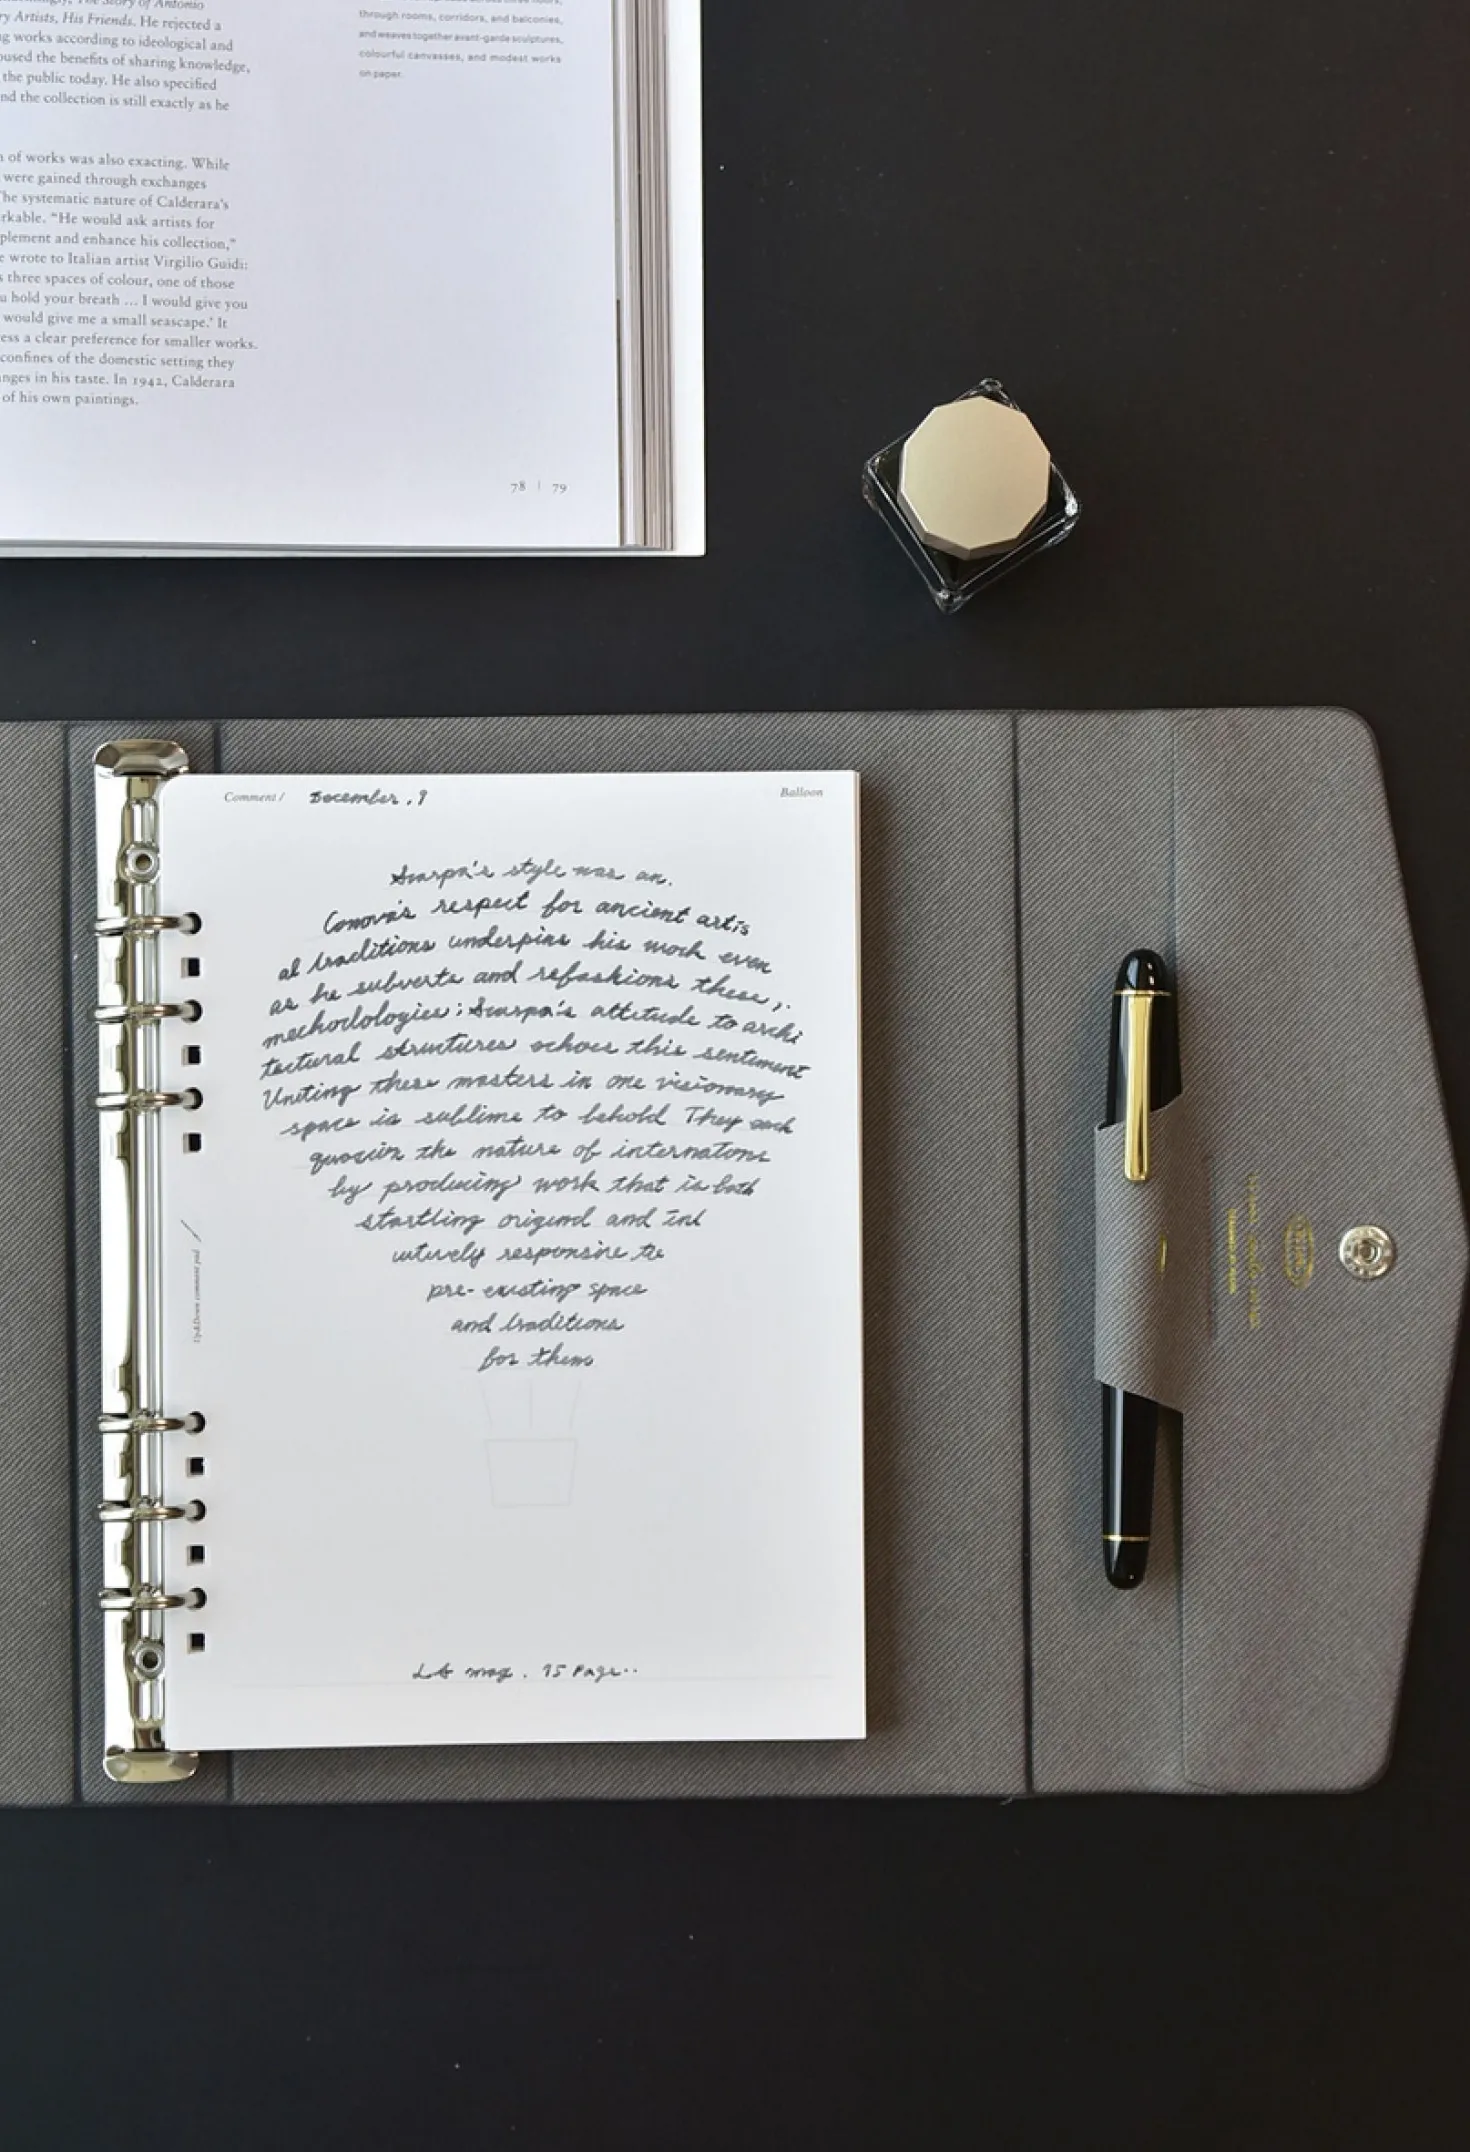 The Story of Antonio
ry Artists, His Friends. He rejected a
ng works according to ideological and
oused the benefits of sharing knowledge,
the public today. He also specified
nd the collection is still exactly as he
n of works was also exacting. While
were gained through exchanges
The systematic nature of Calderara's
rkable. "He would ask artists for
plement and enhance his collection,"
e wrote to Italian artist Virgilio Guidi:
s three spaces of colour, one of those
u hold your breath ... I would give you
would give me a small seascape.' It
ess a clear preference for smaller works.
confines of the domestic setting they
nges in his taste. In 1942, Calderara
of his own paintings.
through rooms, corridors, and balconies,
and weaves together avant-garde sculptures,
colourful canvasses, and modest works
on paper.
78 | 79
Comment / December, 9
Balloon
Scarpa's style was an.
Conova's respect for ancient artis
al traditions underpins his work even
as he subverts and refashions these,.
mechodologies; Scarpa's attitude to archi
tectural structures echoes this sentiment
Uniting these masters in one visionary
space is sublime to behold They each
the nature of internatons
by producing work that is both
startling origind and ind
utively responsive to
pre-existing space
and traditions
for thems
Up&Down comment pad
mag. 95 Page..